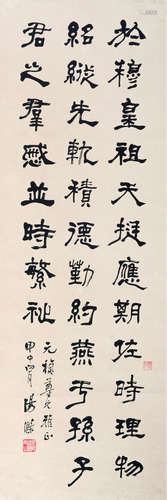 於穆皇祖天挺應期佐時理物
紹縱先軌積德勤約燕于孫子
君之羣慼並時繁祉
元穆尊兄雅正
甲申四月湯滌